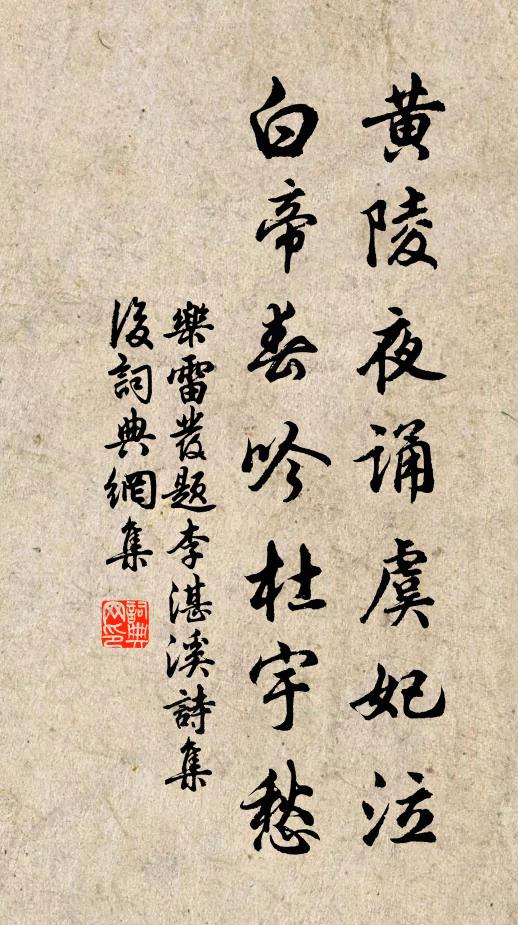 黄陵夜誦虞妃泣
白帝春吟杜宇愁
樂雷發題李湛溪詩集
後詞典網集
詞典
网印